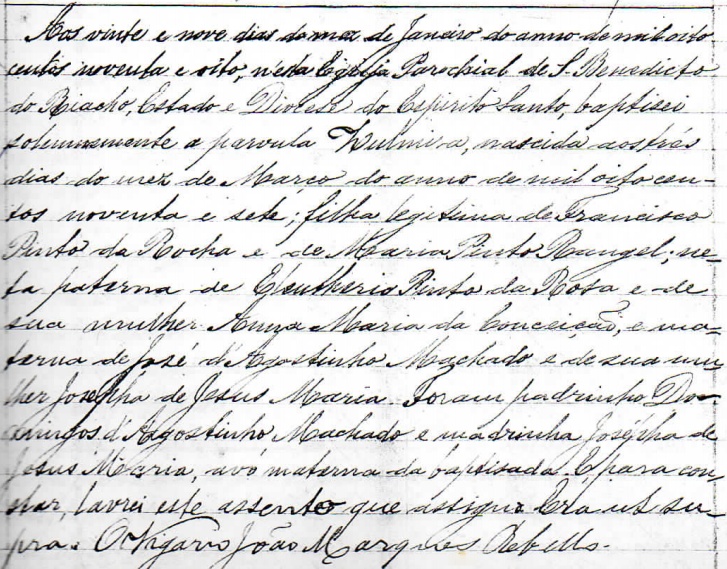 Aos vinte e nove dias do mez de Janeiro do anno de mil oito
centos noventa e oito, nesta Egreja Parochial de S. Benedicto
do Riacho, Estado e Diocese do Espirito Santo, baptisei
solemnemente a parvula Zulmira, nascida aos trés
dias do mez de Março do anno de mil oito cen-
tos noventa e sete, filha legitima de Francisco
Pinto da Rocha e de Maria Pinto Rangel; ne-
ta paterna de Eleutherio Pinto da Rosa e de
sua mulher Anna Maria da Conceição, e ma-
terna de José d'Agostinho Machado e de sua mu-
lher Josepha de Jesus Maria. Foram padrinho Do-
mingos d'Agostinho Machado e madrinha Josépha de
Jesus Maria, avó materna da baptisada. E, para con-
star, lavrei este assento que assigno. Era ut su-
pra. O Vigario João Marques Rebello.